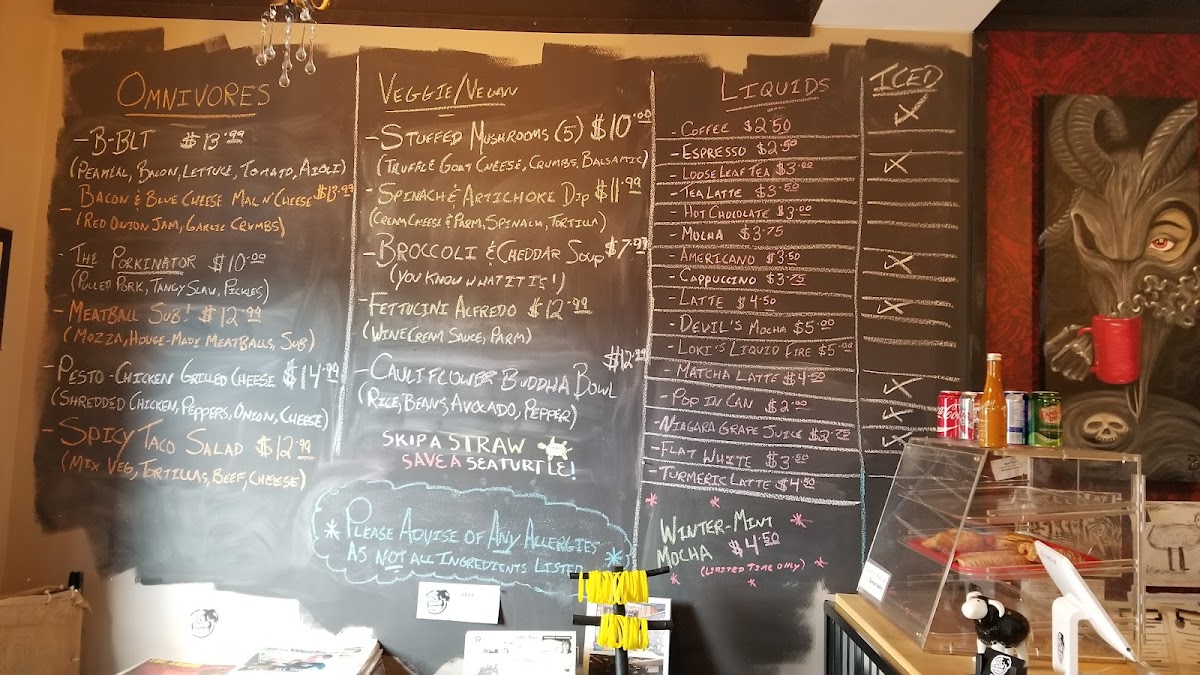 OMNIVORES
- B-BLT $13.99
(PEAMEAL, BACON, LETTUCE, TOMATO, AIOLI)
- BACON & BLUE CHEESE MAC N' CHEESE $13.99
(RED ONION JAM, GARLIC CRUMBS)
- THE PORKINATOR $10.00
(PULLED PORK, TANGY SLAW, PICKLES)
- MEATBALL SUB! $12.99
(MOZZA, HOUSE-MADE MEATBALLS, SUB)
- PESTO-CHICKEN GRILLED CHEESE $14.99
(SHREDDED CHICKEN, PEPPERS, ONION, CHEESE)
- SPICY TACO SALAD $12.99
(MIX VEG, TORTILLAS, BEEF, CHEESE)
VEGGIE/VEGAN
- STUFFED MUSHROOMS (5) $10.00
(TRUFFLE GOAT CHEESE, CRUMBS, BALSAMIC)
- SPINACH & ARTICHOKE DIP $11.99
(CREAM CHEESE & PARM, SPINACH, TORTILLA)
- BROCCOLI & CHEDDAR SOUP $7.99
(YOU KNOW WHAT IT IS!)
- FETTUCINI ALFREDO $12.99
(WINE CREAM SAUCE, PARM)
- CAULIFLOWER BUDDHA BOWL $12.99
(RICE, BEANS, AVOCADO, PEPPER)
SKIP A STRAW
SAVE A SEATURTLE!
* PLEASE ADVISE OF ANY ALLERGIES
AS NOT ALL INGREDIENTS LISTED *
LIQUIDS ICED
- COFFEE $2.50 ✓
- ESPRESSO $2.50
- LOOSE LEAF TEA $3.00 ✓
- TEA LATTE $3.50
- HOT CHOCOLATE $3.00
- MOCHA $3.75
- AMERICANO $3.50 ✓
- CAPPUCCINO $3.75
- LATTE $4.50 ✓
- DEVIL'S MOCHA $5.00
- LOKI'S LIQUID FIRE $5.00
- MATCHA LATTE $4.50 ✓
- POP IN CAN $2.00 ✓
- NIAGARA GRAPE JUICE $2.75 ✓
- FLAT WHITE $3.50
TURMERIC LATTE $4.50
WINTER-MINT
MOCHA $4.50
(LIMITED TIME ONLY)